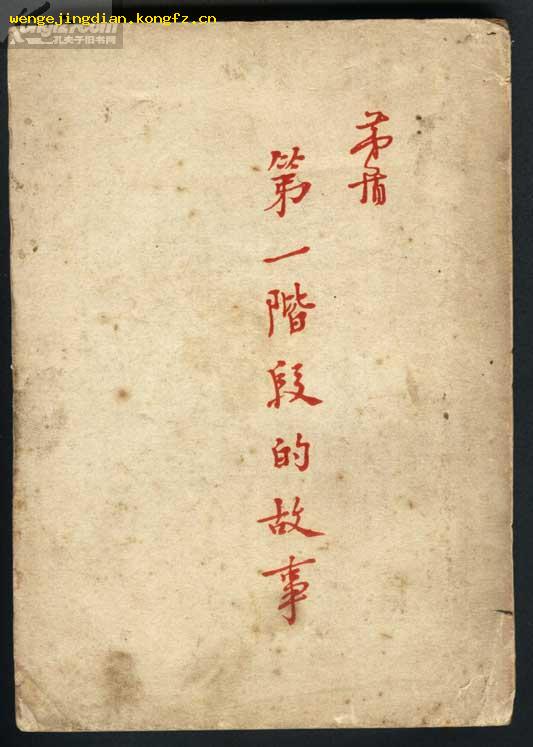 wengejingdian.kongfz.cn
孔夫子旧书网
茅盾
第一階段的故事